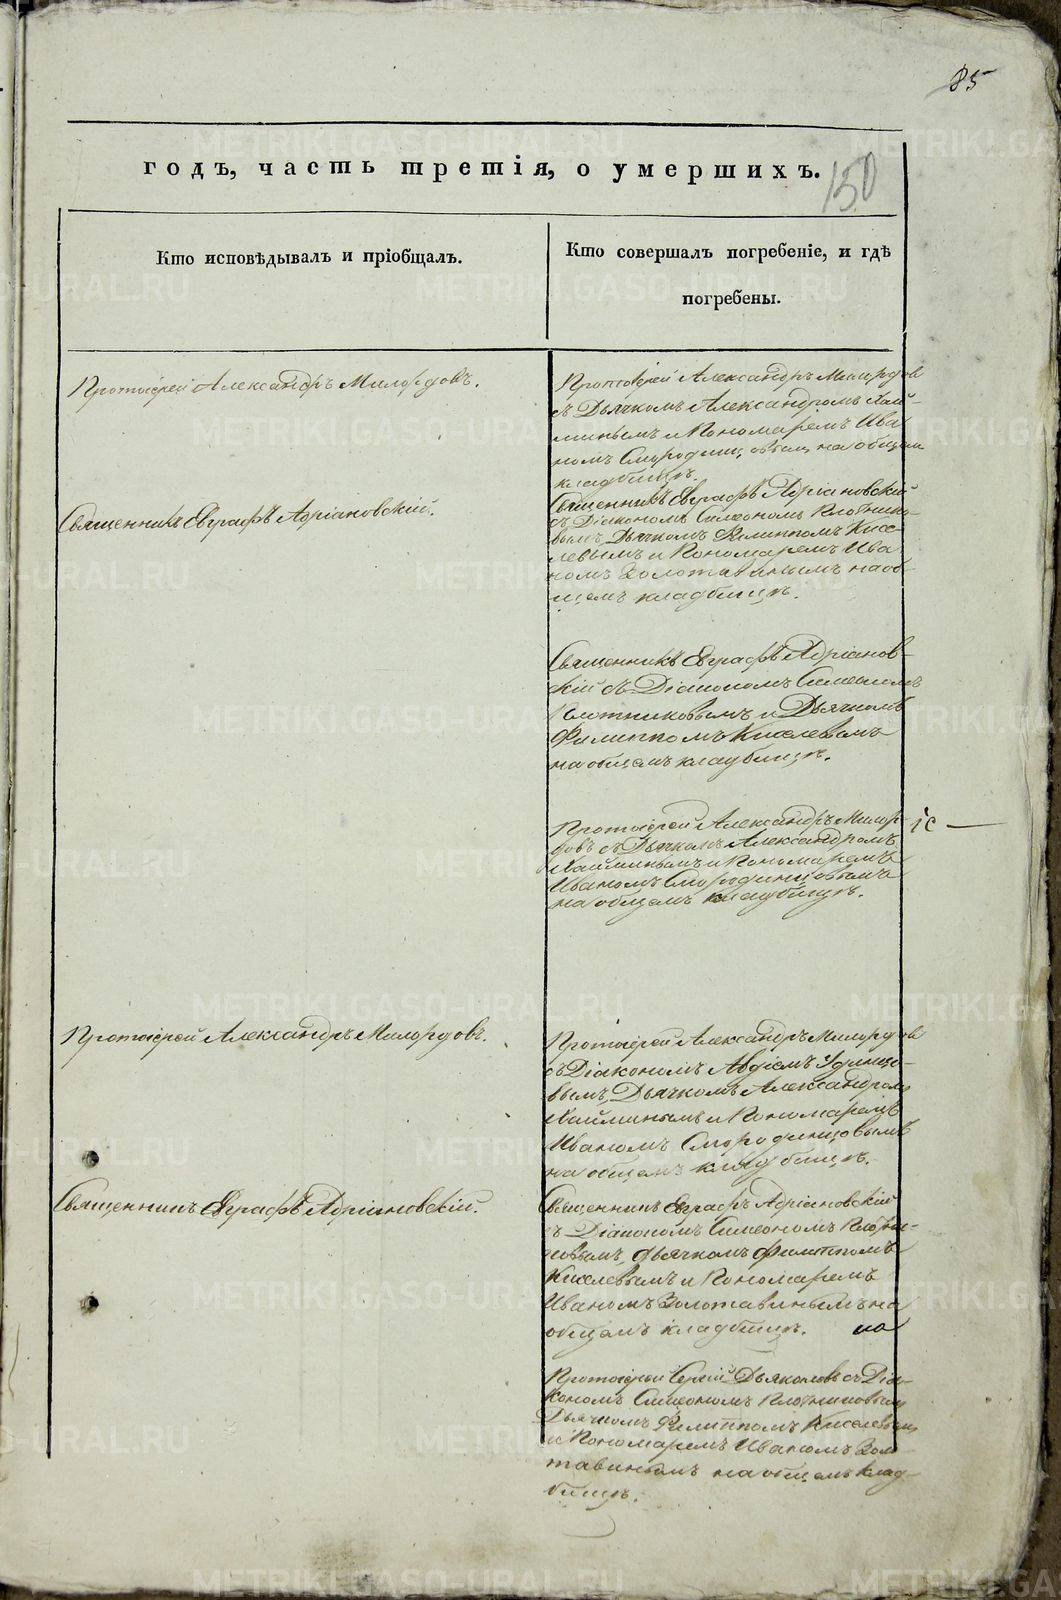 85
годъ, часть третія, о умершихъ.
150
Кто исповѣдывалъ и пріобщалъ.
Кто совершалъ погребеніе, и гдѣ
погребены.
Протоіерей Александръ Милордовъ.
Протоіерей Александръ Милордов
съ Дьячкомъ Александромъ Хай-
минымъ и Пономаремъ Ива
номъ на общем
кладбищѣ.
Священникъ Евграфъ Адріановскій.
Священникъ Евграфъ Адріановскій
съ Діакономъ Симеономъ Плотнико-
вымъ, Дьячкомъ Филиппомъ Кисе-
левымъ и Пономаремъ Ива
номъ Золотавинымъ на об-
щемъ кладбищѣ.
Священникъ Евграфъ Адріанов-
скій съ Діакономъ Симеономъ
Плотниковымъ и Дьячкомъ
Филиппомъ Киселевымъ
на общемъ кладбищѣ.
Протоіерей Александръ Милор-
довъ съ Дьячкомъ Александромъ
Хайминымъ и Пономаремъ
Иваномъ Смородинцовымъ
на общемъ кладбищѣ.
Протоіерей Александръ Милордовъ.
Протоіерей Александръ Милордов
съ Діакономъ Авдіемъ Удинцо-
вымъ, Дьячкомъ Александромъ
Хайминымъ и Пономаремъ
Иваномъ Смородинцовымъ
на общемъ кладбищѣ.
Священникъ Евграфъ Адріановскій.
Священникъ Евграфъ Адріановскій
съ Діакономъ Симеономъ Плотни-
ковымъ, Дьячкомъ Филиппомъ
Киселевымъ и Пономаремъ
Иваномъ Золотавинымъ на
общемъ кладбищѣ.
Протоіерей Сергій Дьяконовъ съ Діа-
кономъ Симеономъ Плотниковым
Дьячкомъ Филиппомъ Киселевым
и Пономаремъ Иваномъ Золо-
тавинымъ на общемъ клад-
бищѣ.